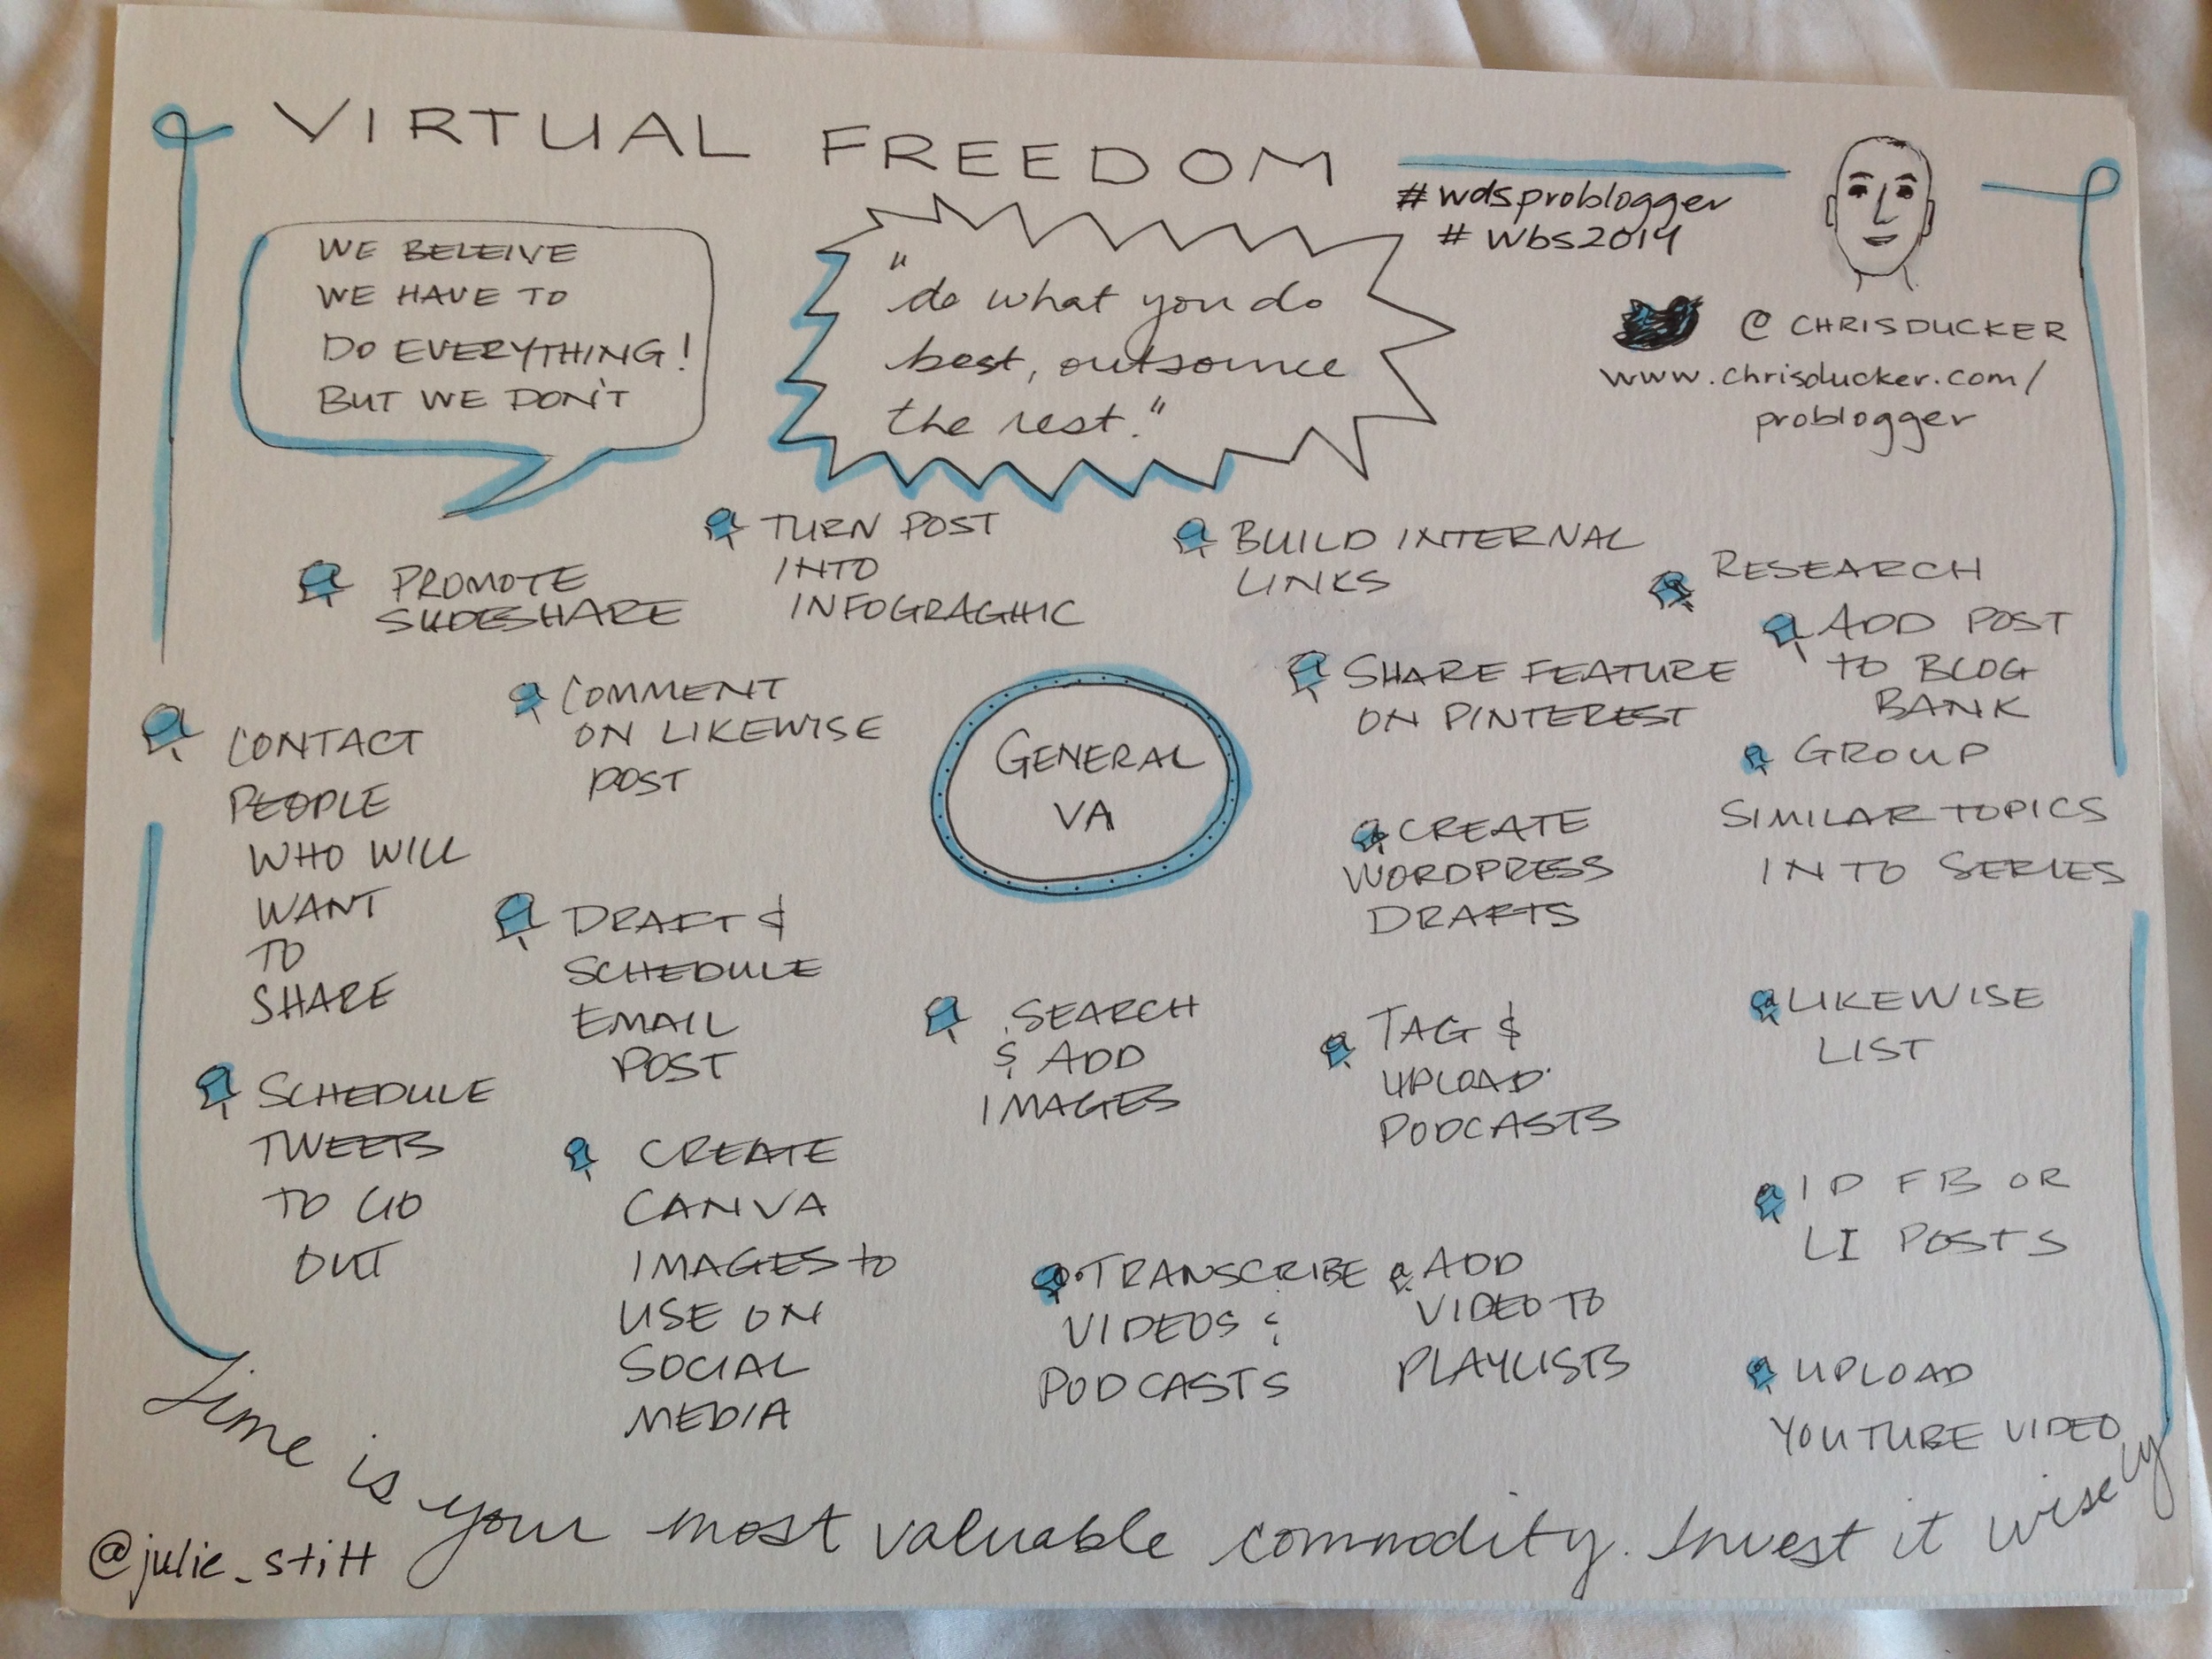 VIRTUAL FREEDOM
#wdsproblogger
#wbs2014
@CHRISDUCKER
www.chrisducker.com/
problogger
WE BELEIVE
WE HAVE TO
DO EVERYTHING!
BUT WE DON'T
"do what you do
best, outsource
the rest."
PROMOTE
SLIDESHARE
TURN POST
INTO
INFOGRAGHIC
BUILD INTERNAL
LINKS
RESEARCH
ADD POST
TO BLOG
BANK
CONTACT
PEOPLE
WHO WILL
WANT
TO
SHARE
COMMENT
ON LIKEWISE
POST
GENERAL
VA
SHARE FEATURE
ON PINTEREST
GROUP
SIMILAR TOPICS
INTO SERIES
CREATE
WORDPRESS
DRAFTS
DRAFT &
SCHEDULE
EMAIL
POST
SEARCH
& ADD
IMAGES
TAG &
UPLOAD
PODCASTS
LIKEWISE
LIST
SCHEDULE
TWEETS
TO GO
OUT
CREATE
CANVA
IMAGES to
USE ON
SOCIAL
MEDIA
TRANSCRIBE
VIDEOS &
PODCASTS
ADD
VIDEO TO
PLAYLISTS
ID FB OR
LI POSTS
UPLOAD
YOUTUBE VIDEO
Time is your most valuable commodity. Invest it wisely
@julie_stitt